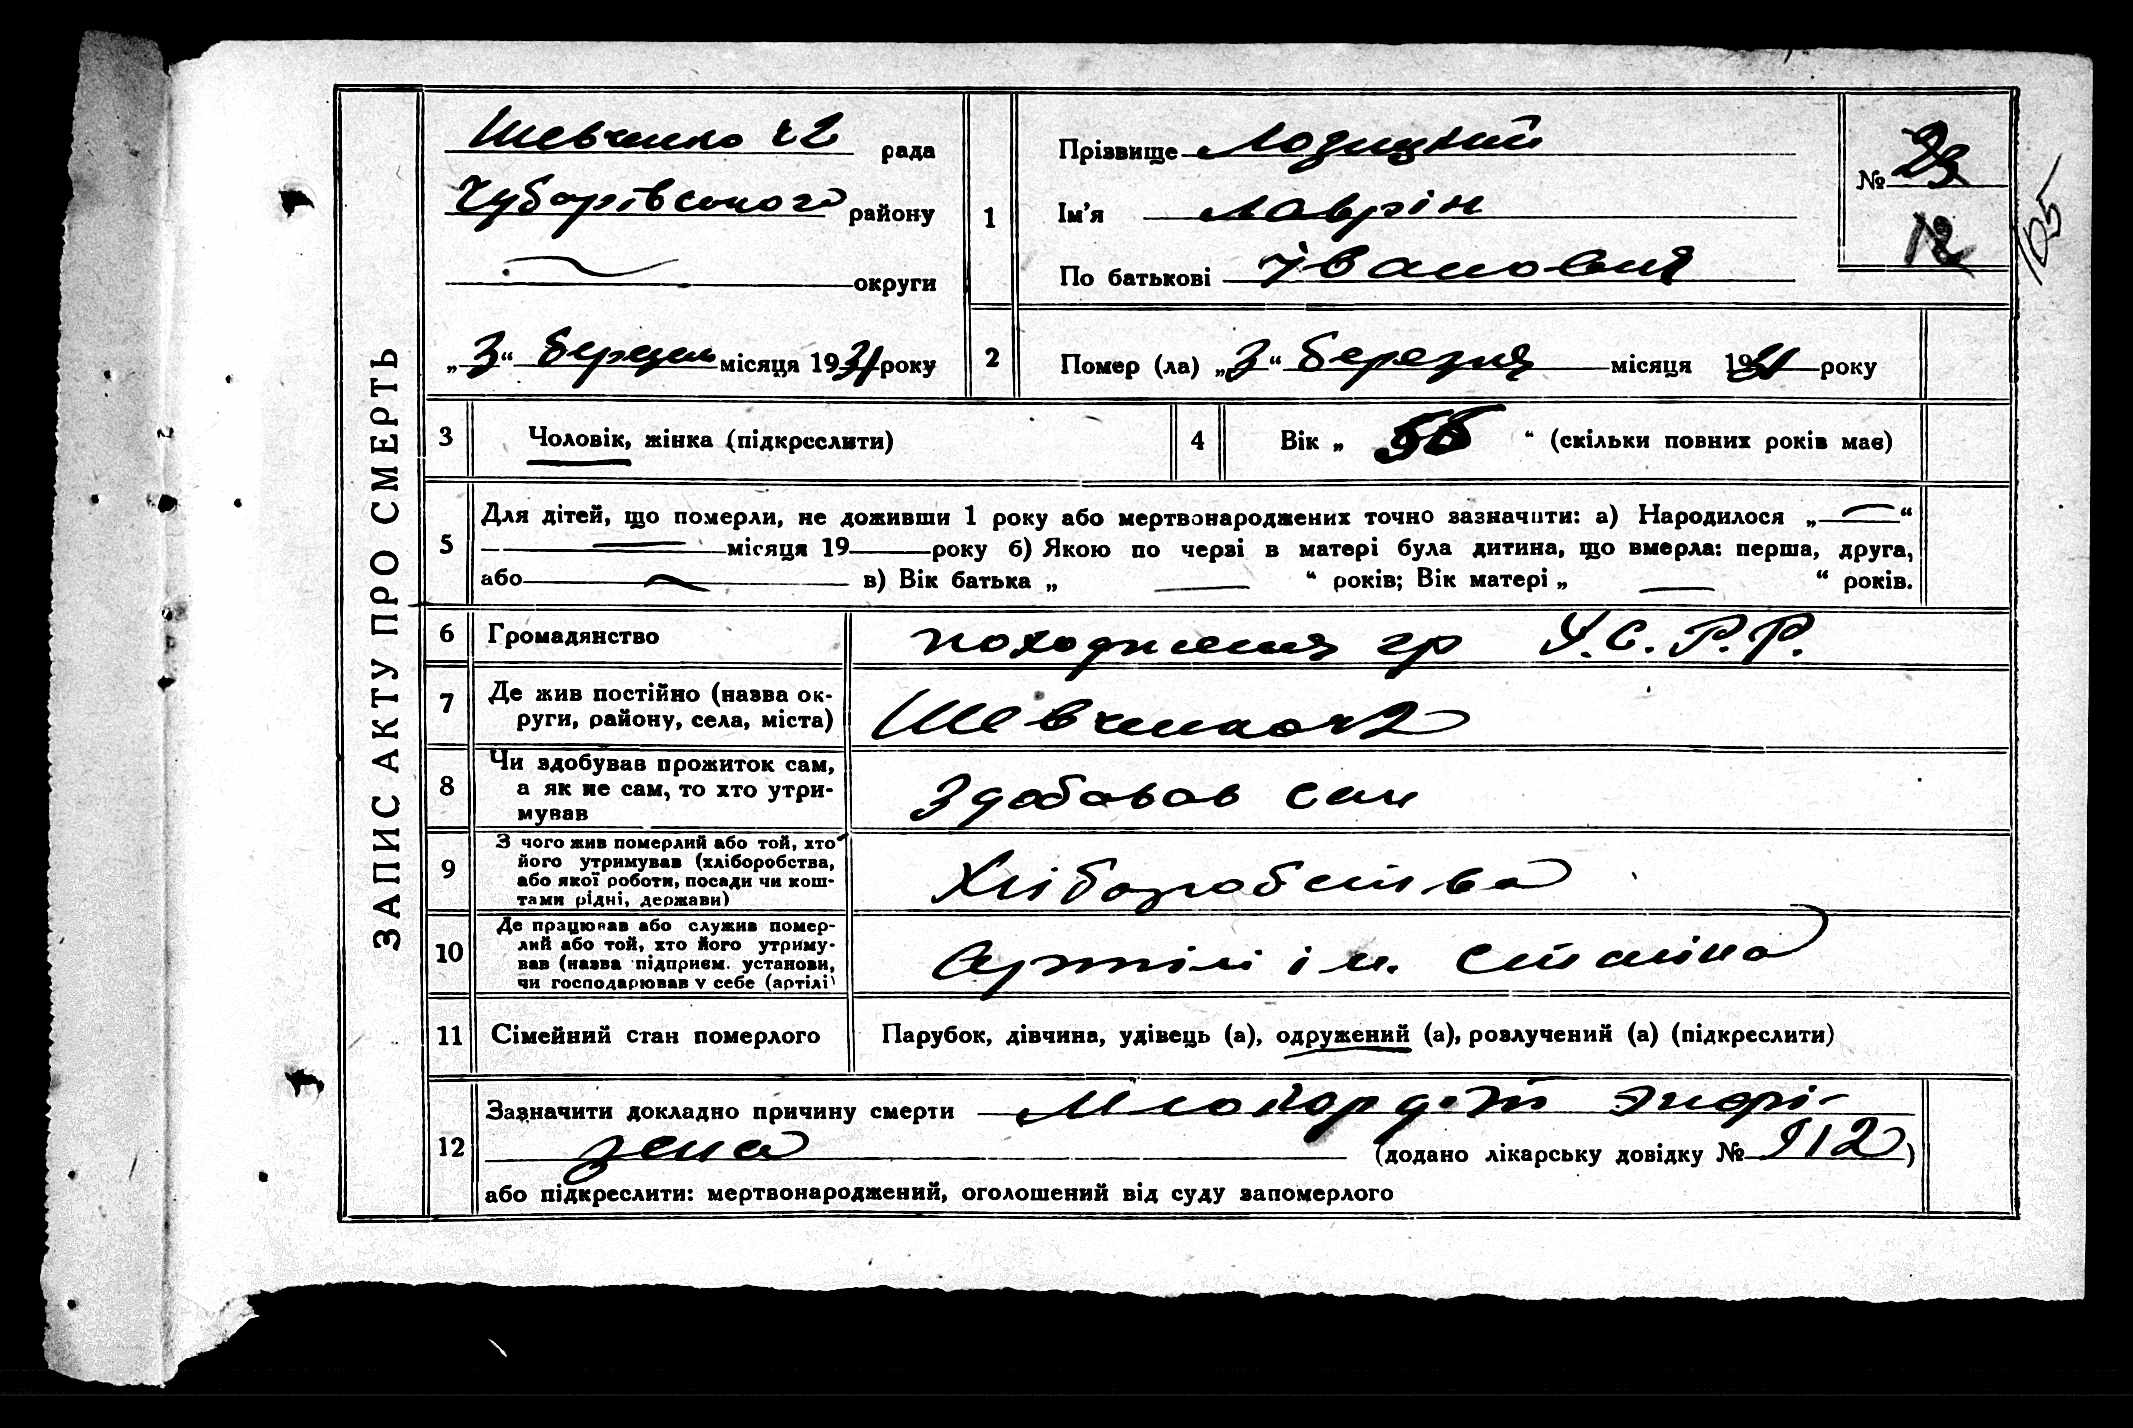 ЗАПИС АКТУ ПРО СМЕРТЬ
Шевченко ч2 рада
Чубарівського району
округи
„3“ березня місяця 1931 року
1
Прізвище Лозицкий
Ім'я Лаврін
По батькові Івановия
№
105
2
Помер (ла) „3“ березня місяця 1931 року
3
Чоловік, жінка (підкреслити)
4
Вік „ “ (скільки повних років має)
5
Для дітей, що померли, не доживши 1 року або мертвонароджених точно зазначити: а) Народилося „ “
місяця 19 року б) Якою по черзі в матері була дитина, що вмерла: перша, друга,
або в) Вік батька „ “ років; Вік матері „ “ років.
6
Громадянство
походження гр У.С.Р.Р.
7
Де жив постійно (назва ок-
руги, району, села, міста)
Шевченко ч2
8
Чи здобував прожиток сам,
а як не сам, то хто утри-
мував
Здобавав сам
9
З чого жив померлий або той, хто
його утримував (хліборобства,
або якої роботи, посади чи кош-
тами рідні, держави)
Хліборобства
10
Де працював або служив помер-
лий або той, хто його утриму-
вав (назва підприєм. установи,
чи господарював у себе (артілі)
Артілі ім. Сталіна
11
Сімейний стан померлого
Парубок, дівчина, удівець (а), одружений (а), розлучений (а) (підкреслити)
12
Зазначити докладно причину смерти
(додано лікарську довідку № 912)
або підкреслити: мертвонароджений, оголошений від суду запомерлого